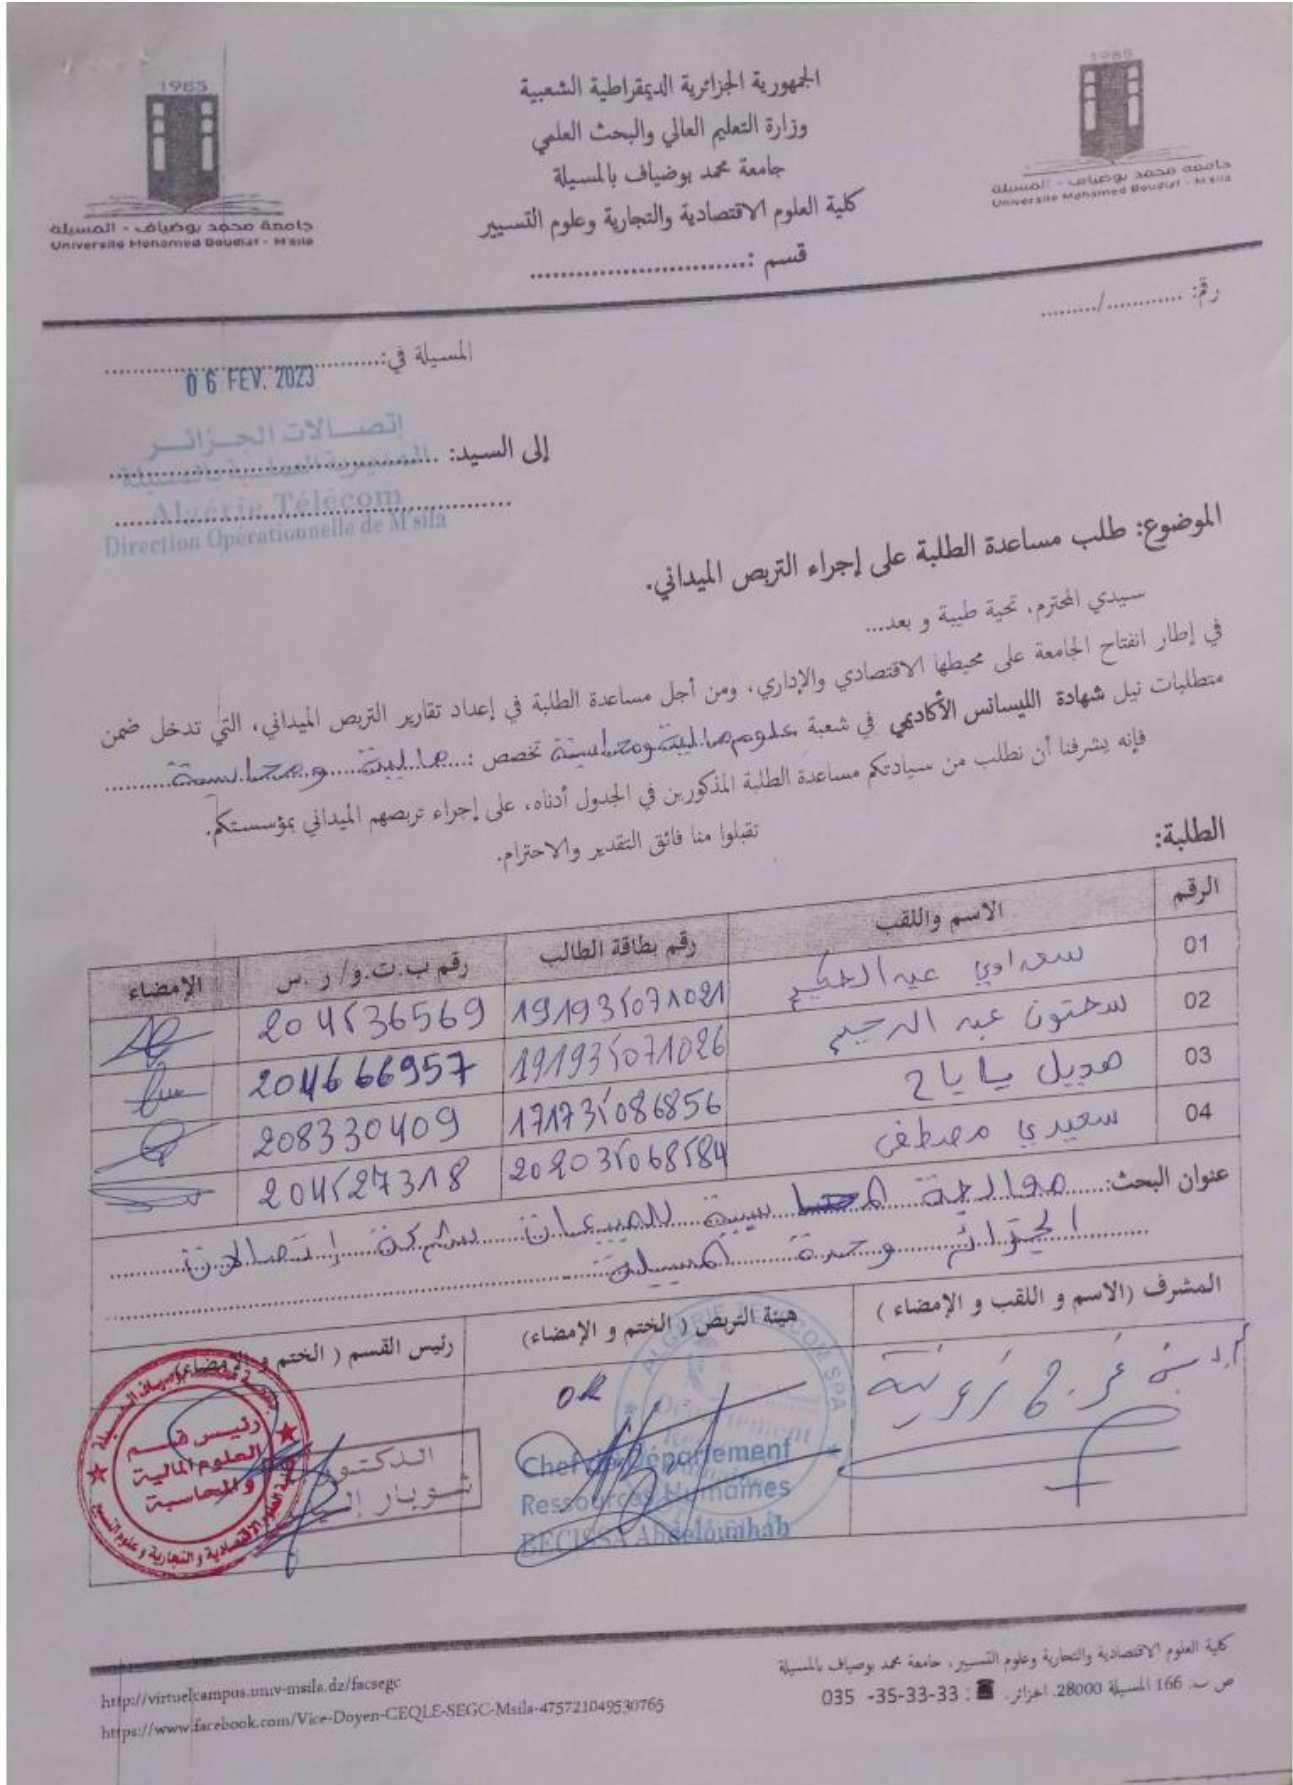 1985
جامعة محمد بوضياف - المسيلة
Université Mohamed Boudiaf - M'sila
1985
جامعة محمد بوضياف - المسيلة
Université Mohamed Boudiaf - M'sila
الجمهورية الجزائرية الديمقراطية الشعبية
وزارة التعليم العالي والبحث العلمي
جامعة محمد بوضياف بالمسيلة
كلية العلوم الاقتصادية والتجارية وعلوم التسيير
قسم :............................
رقم: ............/.........
المسيلة في:....................................
06 FEV. 2023
إلى السيد: ............................................
إتصالات الجزائر
المديرية العملية بالمسيلة
Algérie Télécom
Direction Opérationnelle de M'sila
الموضوع: طلب مساعدة الطلبة على إجراء التربص الميداني.
سيدي المحترم، تحية طيبة و بعد...
في إطار انفتاح الجامعة على محيطها الاقتصادي والإداري، ومن أجل مساعدة الطلبة في إعداد تقارير التربص الميداني، التي تدخل ضمن
متطلبات نيل شهادة الليسانس الأكاديمي في شعبة علوم مالية ومحاسبة تخصص :...مالية ومحاسبة.........
فإنه يشرفنا أن نطلب من سيادتكم مساعدة الطلبة المذكورين في الجدول أدناه، على إجراء تربصهم الميداني بمؤسستكم.
تقبلوا منا فائق التقدير والاحترام.
الطلبة:
الرقم الاسم واللقب رقم بطاقة الطالب رقم ب.ت.و/ ر.س الإمضاء
01 سعداوي عبد الحكيم 191935071021 204536569
02 سحتون عبد الرحيم 191935071026 204666957
03 هديل ياياح 171735086856 208330409
04 سعيدي مصطفى 202035068584 204527318
عنوان البحث: معالجة المحاسبية للمبيعات بشركة إتصالات
الجزائر وحدة المسيلة
المشرف (الاسم و اللقب و الإمضاء ) هيئة التربص ( الختم و الإمضاء) رئيس القسم ( الختم و الإمضاء)
ok
Chef de Département
Ressources Humaines
BECISSA Abdelouahab
رئيس قسم
العلوم المالية
والمحاسبة
الدكتور
كلية العلوم الاقتصادية والتجارية وعلوم التسيير، جامعة محمد بوضياف بالمسيلة
ص ب. 166 المسيلة 28000. الجزائر. ☎ : 035 -35-33-33
http://virtuelcampus.univ-msila.dz/facsegc
https://www.facebook.com/Vice-Doyen-CEQLE-SEGC-Msila-475721049530765